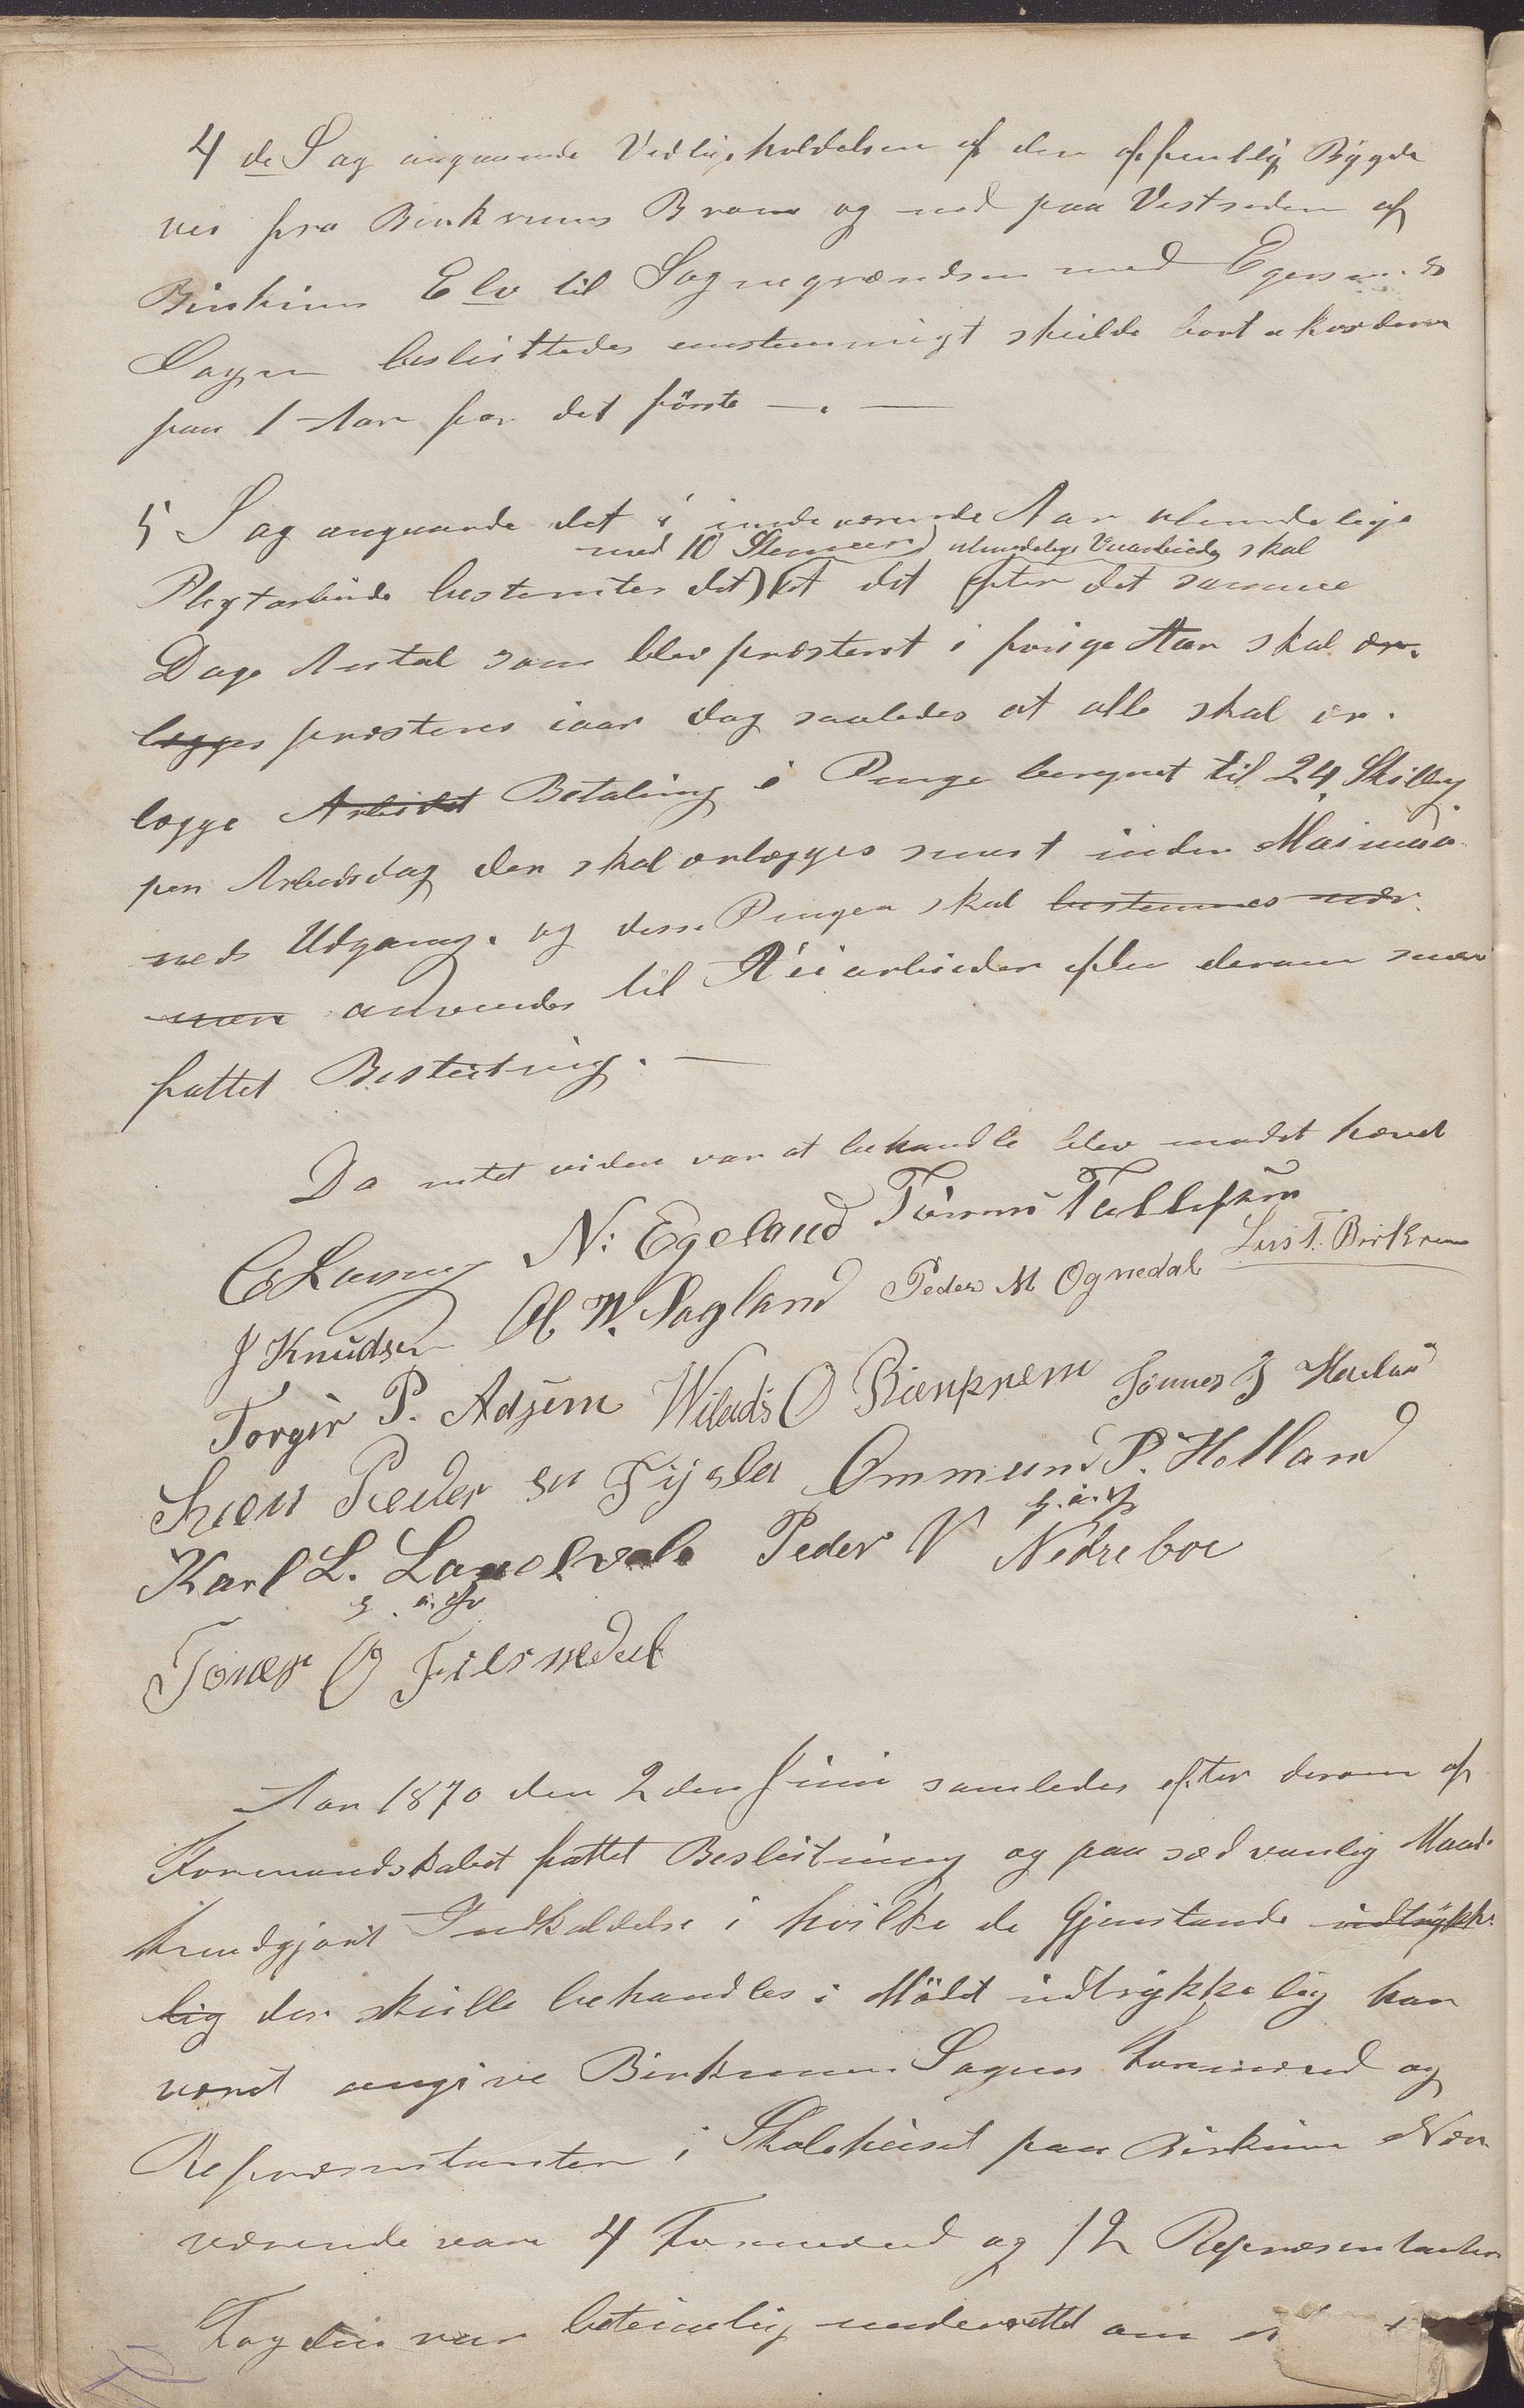 4 de Sag angaaende Vedligeholdelsen af den offentlig Bygde
vei fra Birkrems Broen og ned paa Vestsiden af
Birkrem Elv til Sognegrændsen med Egersunds
Sogn besluttedes enstemmigt skulde bortakorderes
paa 1 Aar for det förste —.—
5 Sag angaaende det i indeværende Aar almindelige
med 10 Stemmer almindelige Veiarbeide skal
Pligtarbeide bestemtes det at det efter det samme
Dage Antal som blev præsteret i forige Aar skal er-
lægges præsteres iaar dog saaledes at alle skal er-
lægge Arbeidet Betaling i Penge beregnet til 24 Skilling
per Arbeidsdag der skal erlægges snart inden Maimaa-
neds Udgang. og disse Pengen skal bestemmes nær-
mere anvendes til Veiarbeider efter derom nær
fattet Beslutning. —
Da intet videre var at behandle blev mødet hævet
N: Egeland Tönnes Tollefsen
J Knudsen Ol. W. Sagland Peder M Ognedal Lars T. Birkrem
Torger P. Adsem Wilads O Birkrem Tönnes J Hovland
Sven Peder sn Fijslei Ommund P. Hetland
m. i. P.
Karl L. Landsvale Peder V Nedrebøe
m. i. P.
Tönes O Fiermedal
Aar 1870 den 2den Juni samledes efter derom af
Formandskabet fattet Beslutning og paa sædvanlig Maade
kundgjort Indkaldelse i hvilke de Gjenstande udtrykke-
lig der skulle behandles i Mödet udtrykkelig har
været angivne Birkrems Sogns Formænd og
Repræsentanter i Skolehuset paa Birkrem Nær
værende vare 4 Formænd og 12 Repræsentanter
Fogden var betimelig underrettet om